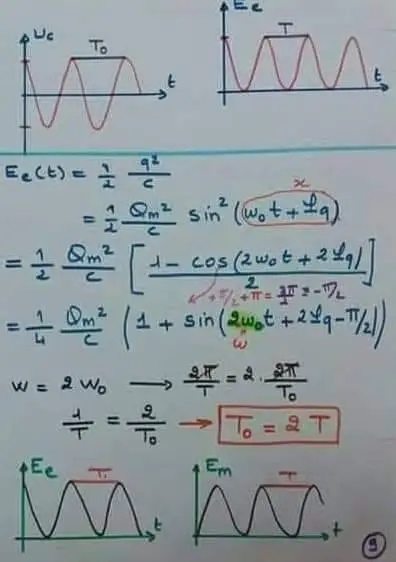 uc
T₀
t
Ee
T
t
Ee(t) = 1/2 q²/c
x
= 1/2 Qm²/c sin²(ω₀t + φq)
= 1/2 Qm²/c [1 - cos(2ω₀t + 2φq)/2]
+π/2 + π = 3π/2 = -π/2
= 1/4 Qm²/c (1 + sin(2ω₀t + 2φq - π/2))
ω
ω = 2ω₀ → 2π/T = 2·2π/T₀
1/T = 2/T₀ → T₀ = 2T
Ee
T
t
Em
T
t
9